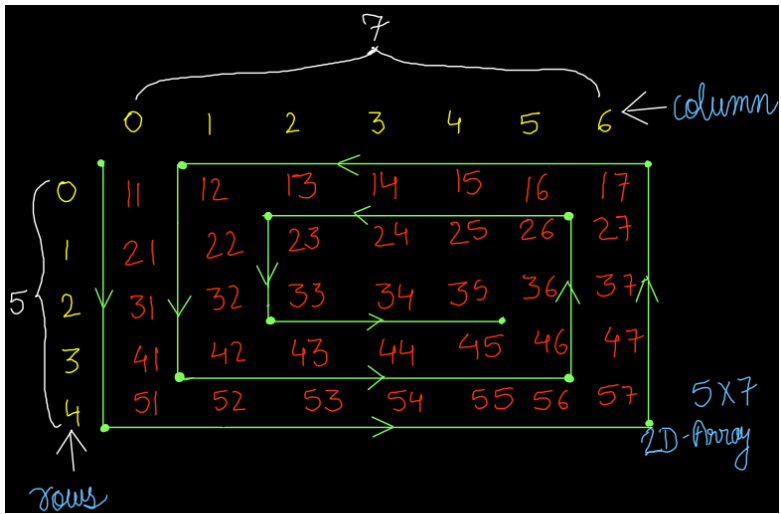 7
0 1 2 3 4 5 6 column
0 11 12 13 14 15 16 17
1 21 22 23 24 25 26 27
5 2 31 32 33 34 35 36 37
3 41 42 43 44 45 46 47
4 51 52 53 54 55 56 57 5X7
2D-Array
rows